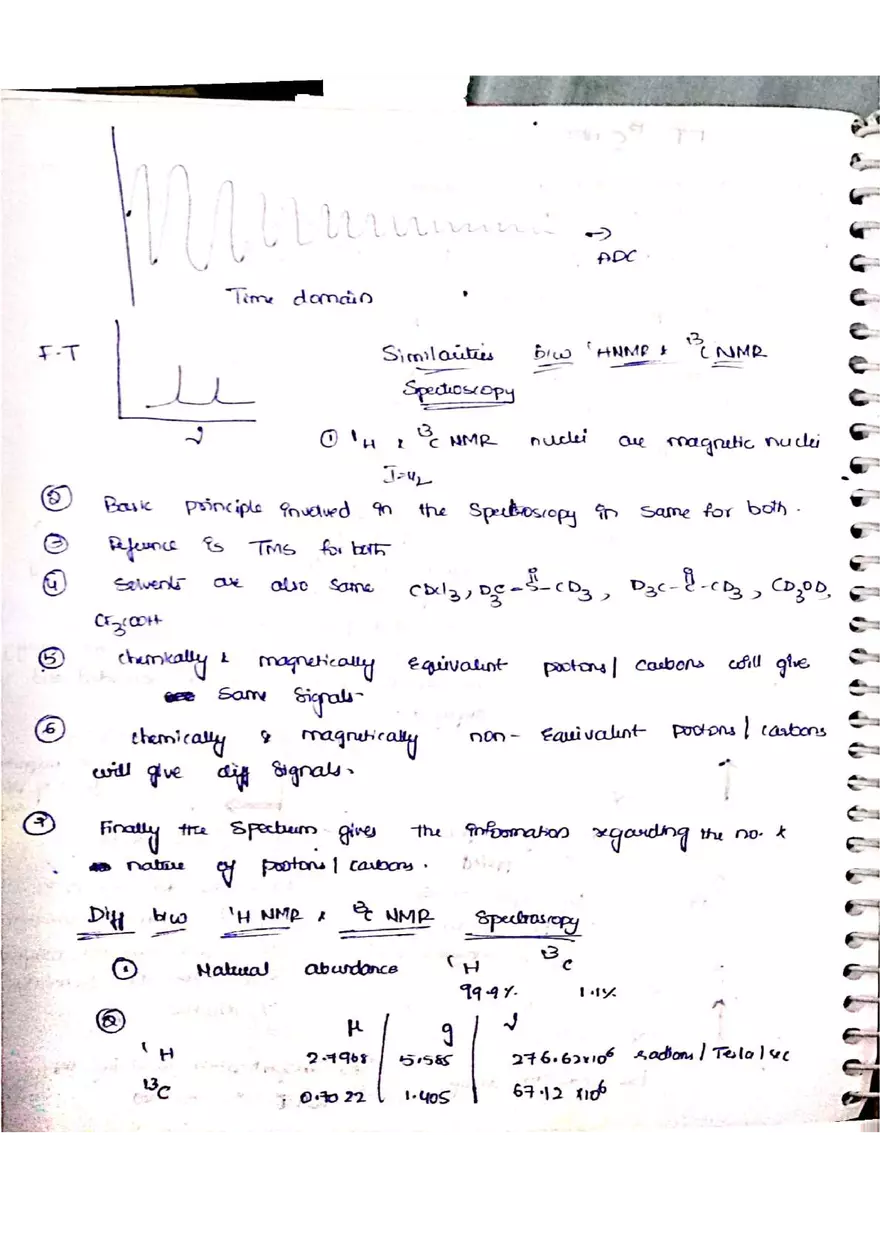 →
ADC
Time domain
F.T
ν
Similarities b/w ¹HNMR & ¹³C NMR
Spectroscopy
① ¹H & ¹³C NMR nuclei are magnetic nuclei
I=½
② Basic principle involved in the Spectroscopy in same for both.
③ Reference is TMS for both
④ Solvents are also same CDCl₃, D₃C-S(=O)-CD₃, D₃C-C(=O)-CD₃, CD₃OD,
CF₃COOH
⑤ chemically & magnetically equivalent protons/ carbons will give
same Signals-
⑥ chemically & magnetically non-Equivalent protons/ carbons
will give diff signals.
⑦ Finally the Spectrum gives the information regarding the no. &
nature of protons/ carbons.
Diff b/w ¹H NMR & ¹³C NMR Spectroscopy
① Natural abundance ¹H ¹³C
99.9%. 1.1%
② μ g ν
¹H 2.7968 5.585 276.62x10⁶ radions/ Tesla/sec
¹³C 0.7022 1.405 67.12 x10⁶